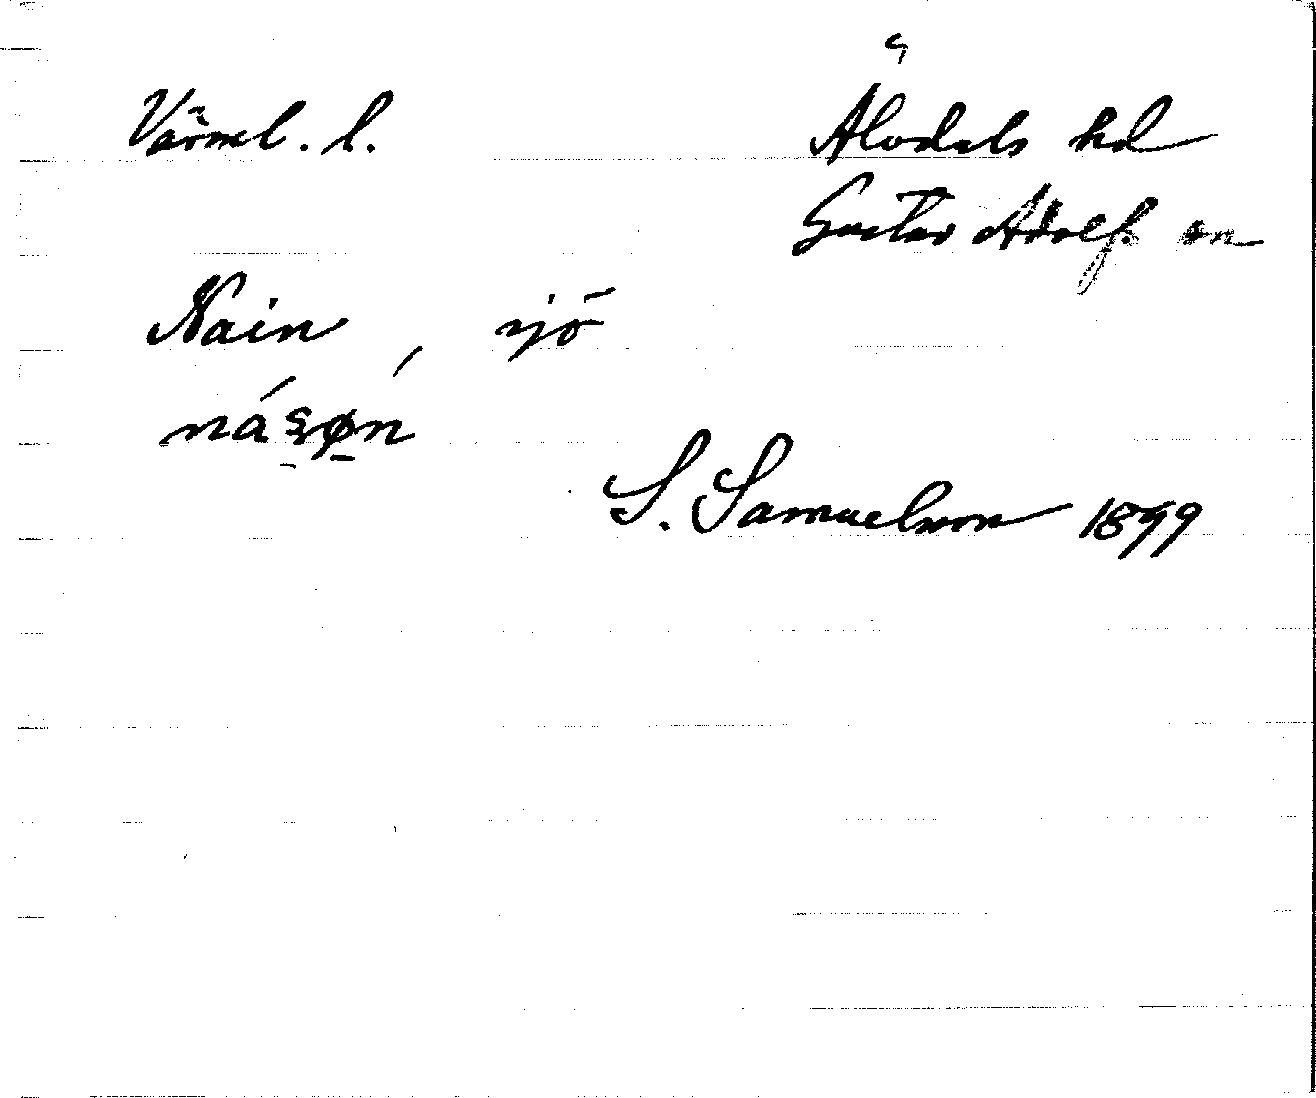 Värml. l. Älvdals hd
Gustav Adolf sn
Nain, sjö
S. Samuelsson 1899